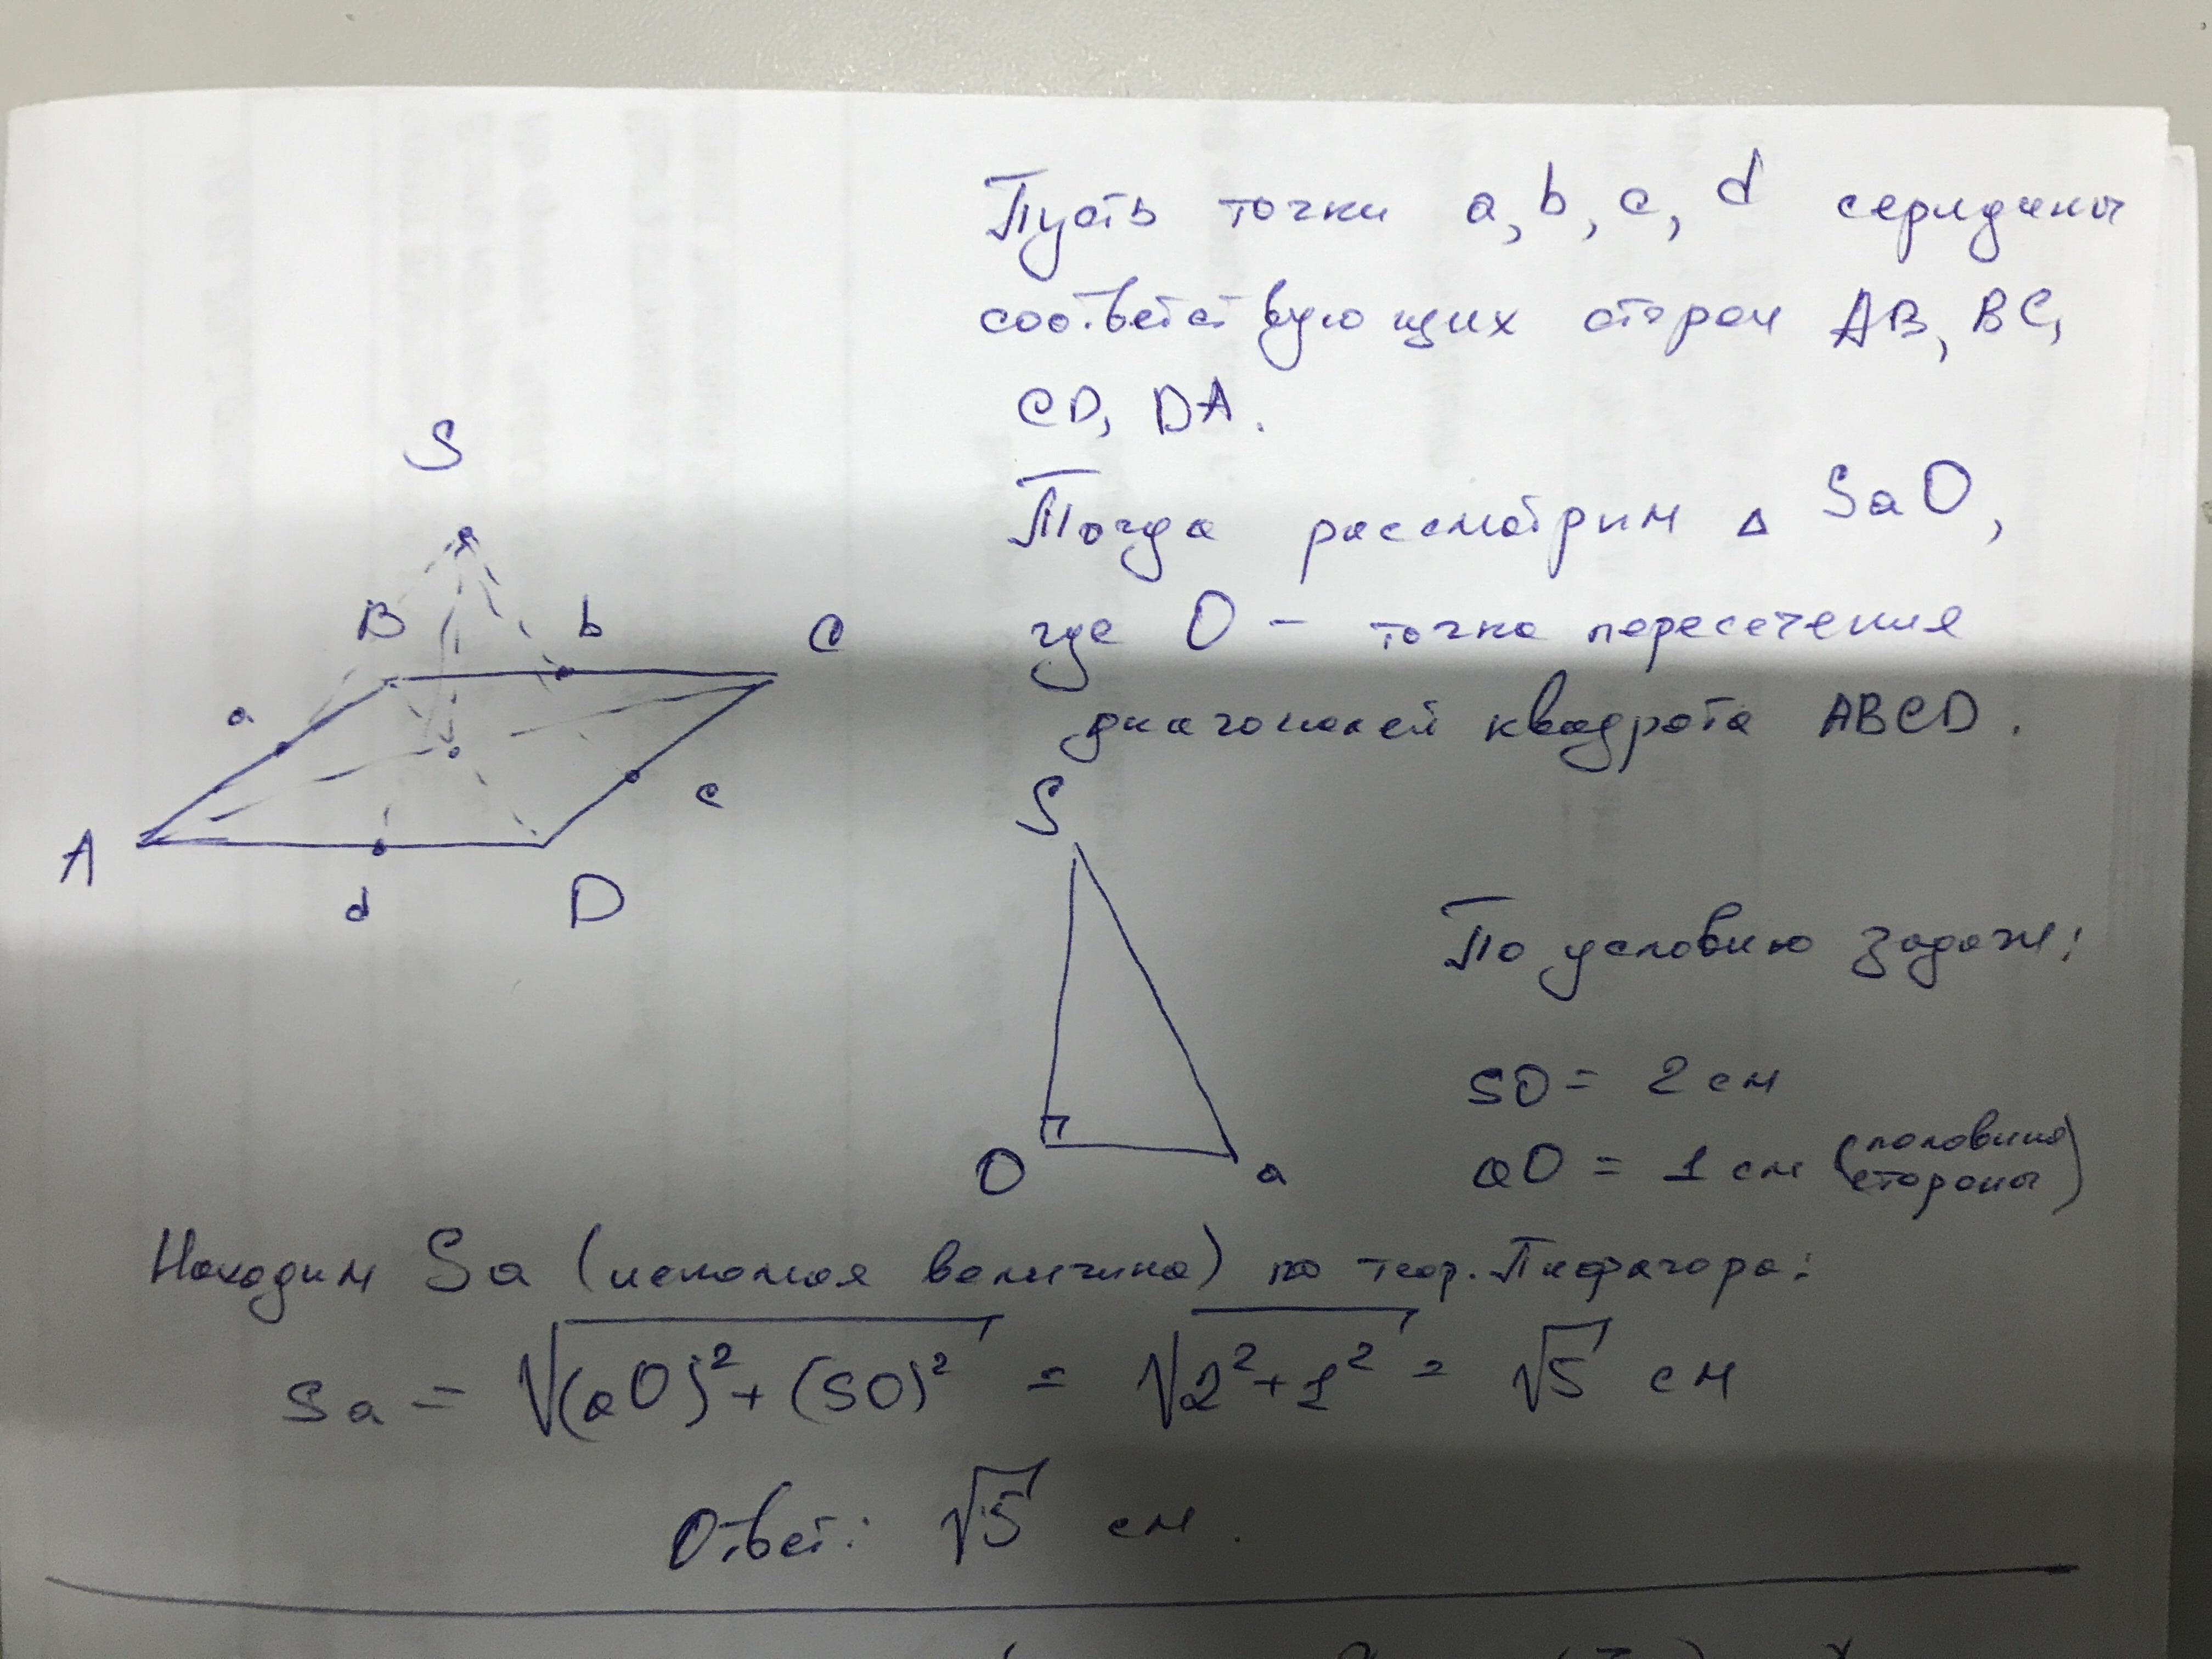 Пусть точки a, b, c, d середины
соответствующих сторон AB, BC,
CD, DA.
S
Тогда рассмотрим △ SaO,
где O - точка пересечения
диагоналей квадрата ABCD.
B b C
a
c
A
d D
S
O a
По условию задачи:
SO = 2 см
aO = 1 см (половина стороны)
Находим Sa (искомая величина) по теор. Пифагора:
Sa = √((aO)²+(SO)²) = √(2²+1²) = √5 см
Ответ: √5 см.